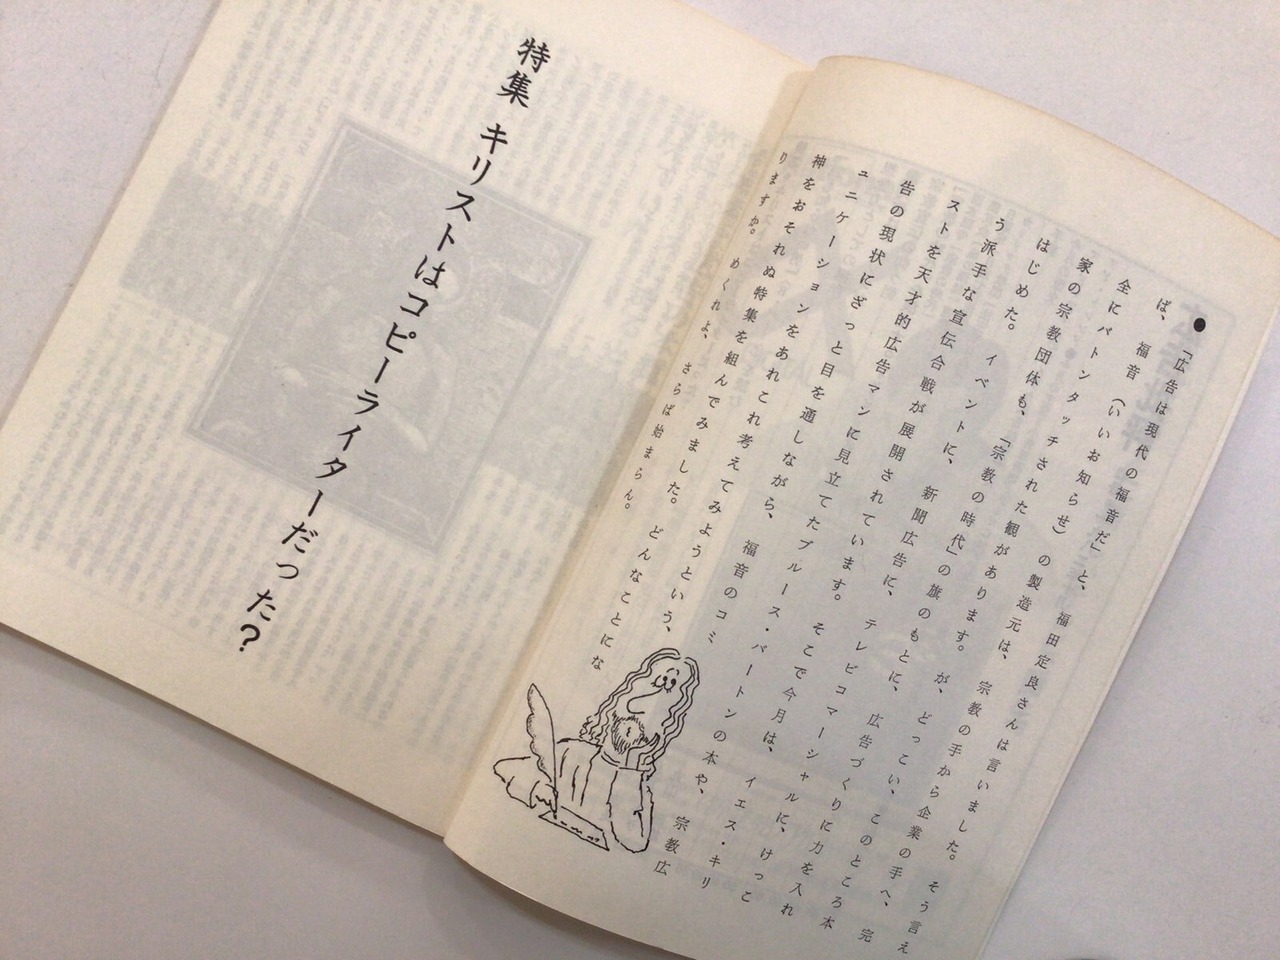 ●「広告は現代の福音だ」と、福田定良さんは言いました。そう言え
ば、福音(いいお知らせ)の製造元は、宗教の手から企業の手へ、完
全にバトンタッチされた観があります。が、どっこい、このところ本
家の宗教団体も、「宗教の時代」の旗のもとに、広告づくりに力を入れ
はじめた。イベントに、新聞広告に、テレビコマーシャルに、けっこ
う派手な宣伝合戦が展開されています。そこで今月は、イエス・キリ
ストを天才的広告マンに見立てたブルース・バートンの本や、宗教広
告の現状にざっと目を通しながら、福音のコミ
ュニケーションをあれこれ考えてみようという、
神をおそれぬ特集を組んでみました。どんなことにな
りますか。めくれよ、さらば始まらん。
特集 キリストはコピーライターだった?